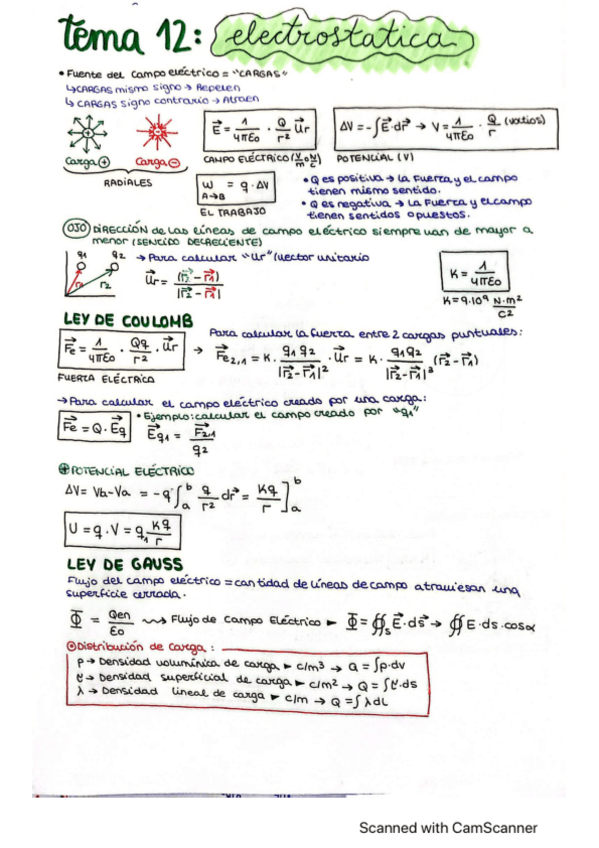 tema 12: electrostatica
• Fuente del campo eléctrico = "CARGAS"
↳ CARGAS mismo signo → Repelen
↳ CARGAS signo contrario → Atraen
Carga ⊕ Carga ⊖
RADIALES
E⃗ = 1/4πƐo · Q/r² · U⃗r
CAMPO ELÉCTRICO (V/m o N/C)
ΔV = -∫E⃗·dr⃗ → V = 1/4πƐo · Q/r (voltios)
POTENCIAL (V)
W A→B = q · ΔV
EL TRABAJO
• Q es positiva → la fuerza y el campo
tienen mismo sentido.
• Q es negativa → La fuerza y el campo
tienen sentidos opuestos.
OJO DIRECCIÓN de las líneas de campo eléctrico siempre van de mayor a
menor (SENTIDO DECRECIENTE)
q1 q2
r1 r2
→ Para calcular "Ur" (vector unitario
U⃗r = (r⃗2 - r⃗1) / |r⃗2 - r⃗1|
K = 1/4πƐo
K = 9·10⁹ N·m²/C2
LEY DE COULOMB
Para calcular la fuerza entre 2 cargas puntuales:
F⃗e = 1/4πƐo · Qq/r² · U⃗r → F⃗e2,1 = K · q1q2/|r⃗2-r⃗1|² · U⃗r = K · q1q2/|r⃗2-r⃗1|³ (r⃗2-r⃗1)
FUERZA ELÉCTRICA
→ Para calcular el campo eléctrico creado por una carga:
• Ejemplo: calcular el campo creado por "q1"
F⃗e = Q · E⃗q
E⃗q1 = F⃗2,1/q2
⊕ POTENCIAL ELÉCTRICO
ΔV = Vb-Va = -q∫ₐᵇ q/r² dr⃗ = Kq/r ]ₐᵇ
U = q · V = q1 Kq/r
LEY DE GAUSS
Flujo del campo eléctrico = cantidad de líneas de campo atraviesan una
superficie cerrada.
Φ = Qen/Ɛo ⇝ Flujo de Campo Eléctrico ► Φ = ∯s E⃗·ds⃗ → ∯ E·ds·cosα
⊙ Distribución de carga:
ρ → Densidad volumínica de carga ► c/m³ → Q = ∫ρ·dv
σ → Densidad superficial de carga ► c/m² → Q = ∫σ·ds
λ → Densidad lineal de carga ► c/m → Q = ∫λdL
Scanned with CamScanner